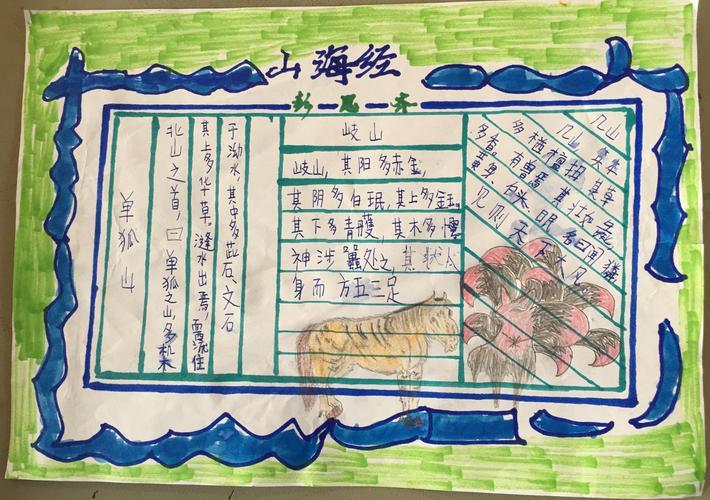 山海经
彭思
单狐山
北山之首,曰单狐之山多机木
其上多化十草。漨水出焉,西流住
于泑水,其中多茈石、文石
岐山
岐山,其阳多赤金,
其阴多白珉,其上多金玉,
其下多青雘,其木多
神涉鼍处之,其状人
身而 方五三足
几山
几山,其木
多楢檀扭,其草
多香。有兽焉,其状如彘
黄身、白头 名曰闻獜
见则天下大风